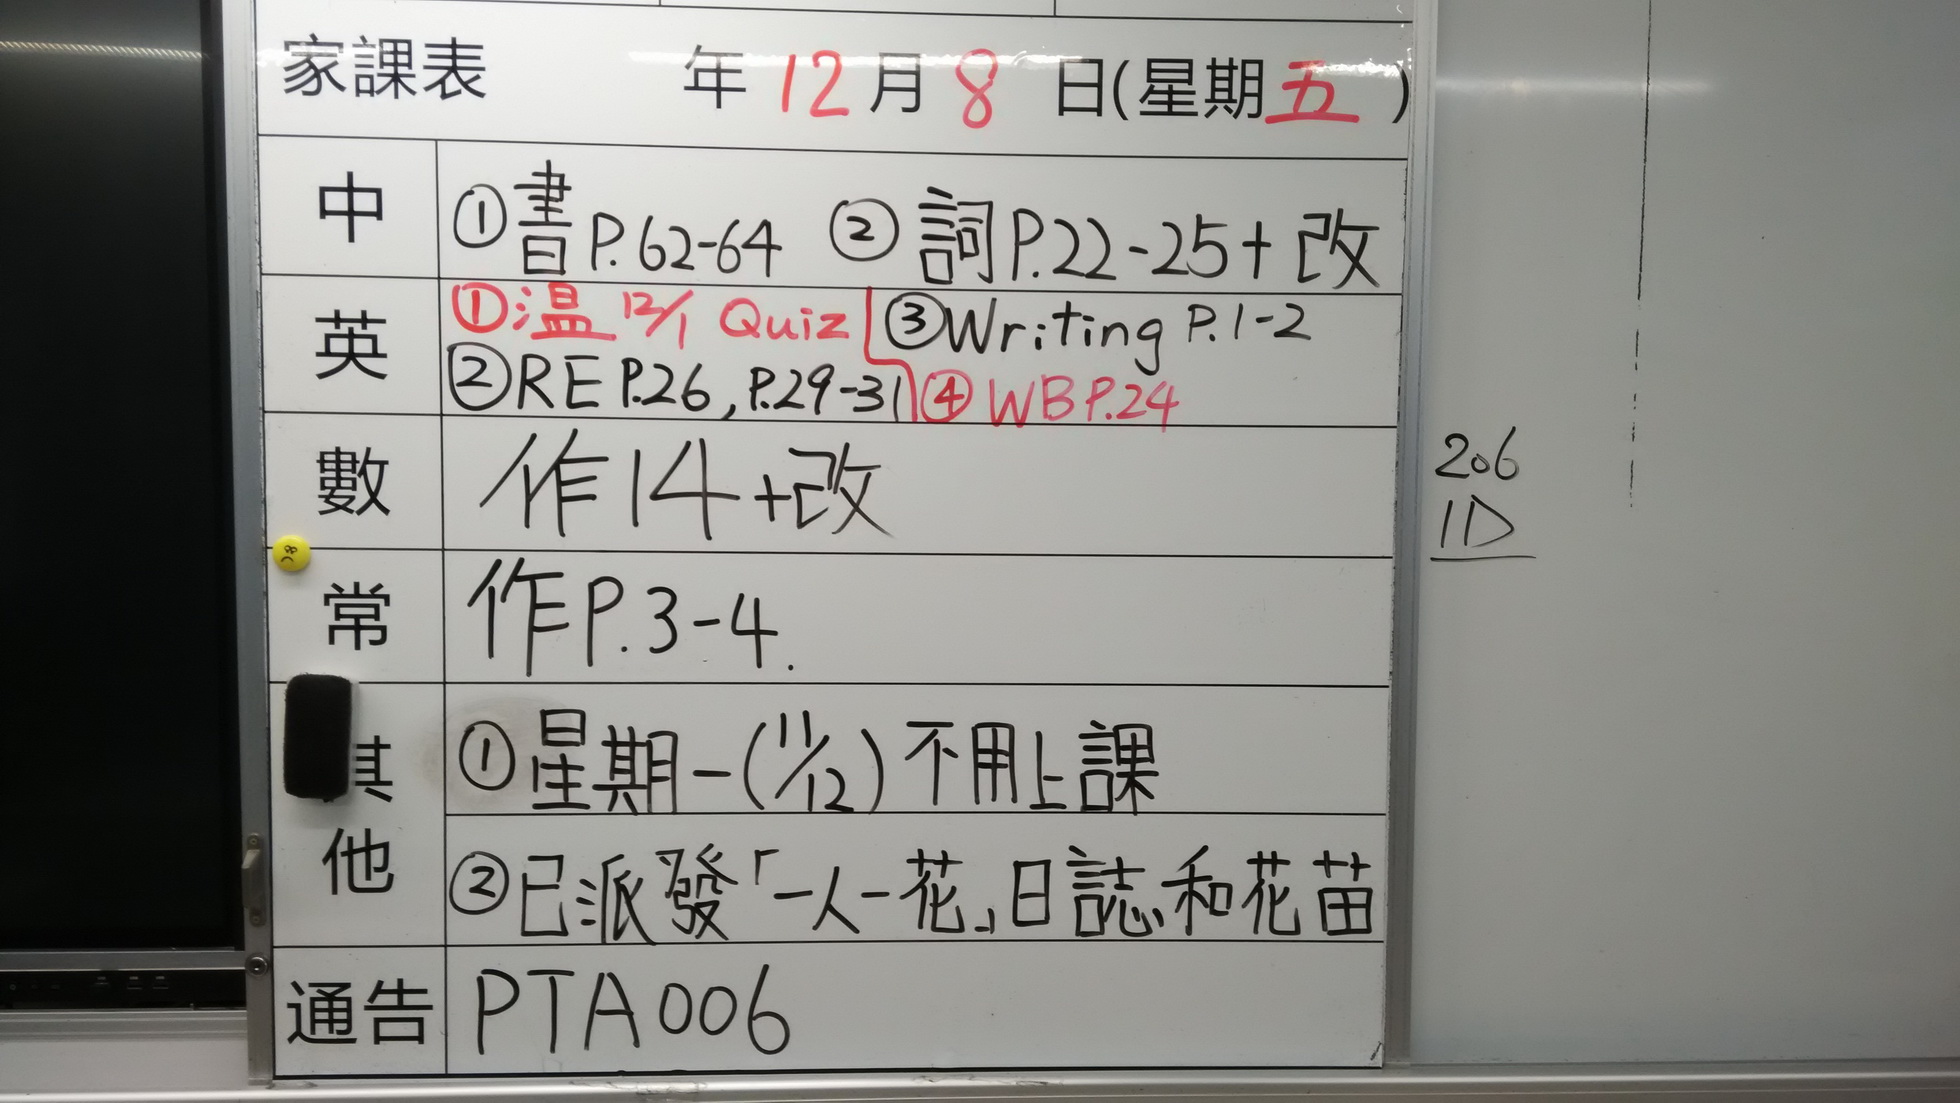 家課表 年 12 月 8 日(星期五)
中 ①書P.62-64 ②詞P.22-25+改
英 ①温 12/1 Quiz ③Writing P.1-2
②RE P.26, P.29-31 ④WB P.24
數 作14+改
常 作P.3-4.
其他 ①星期一(11/12)不用上課
②已派發「一人一花」日誌和花苗
通告 PTA006
206
1D